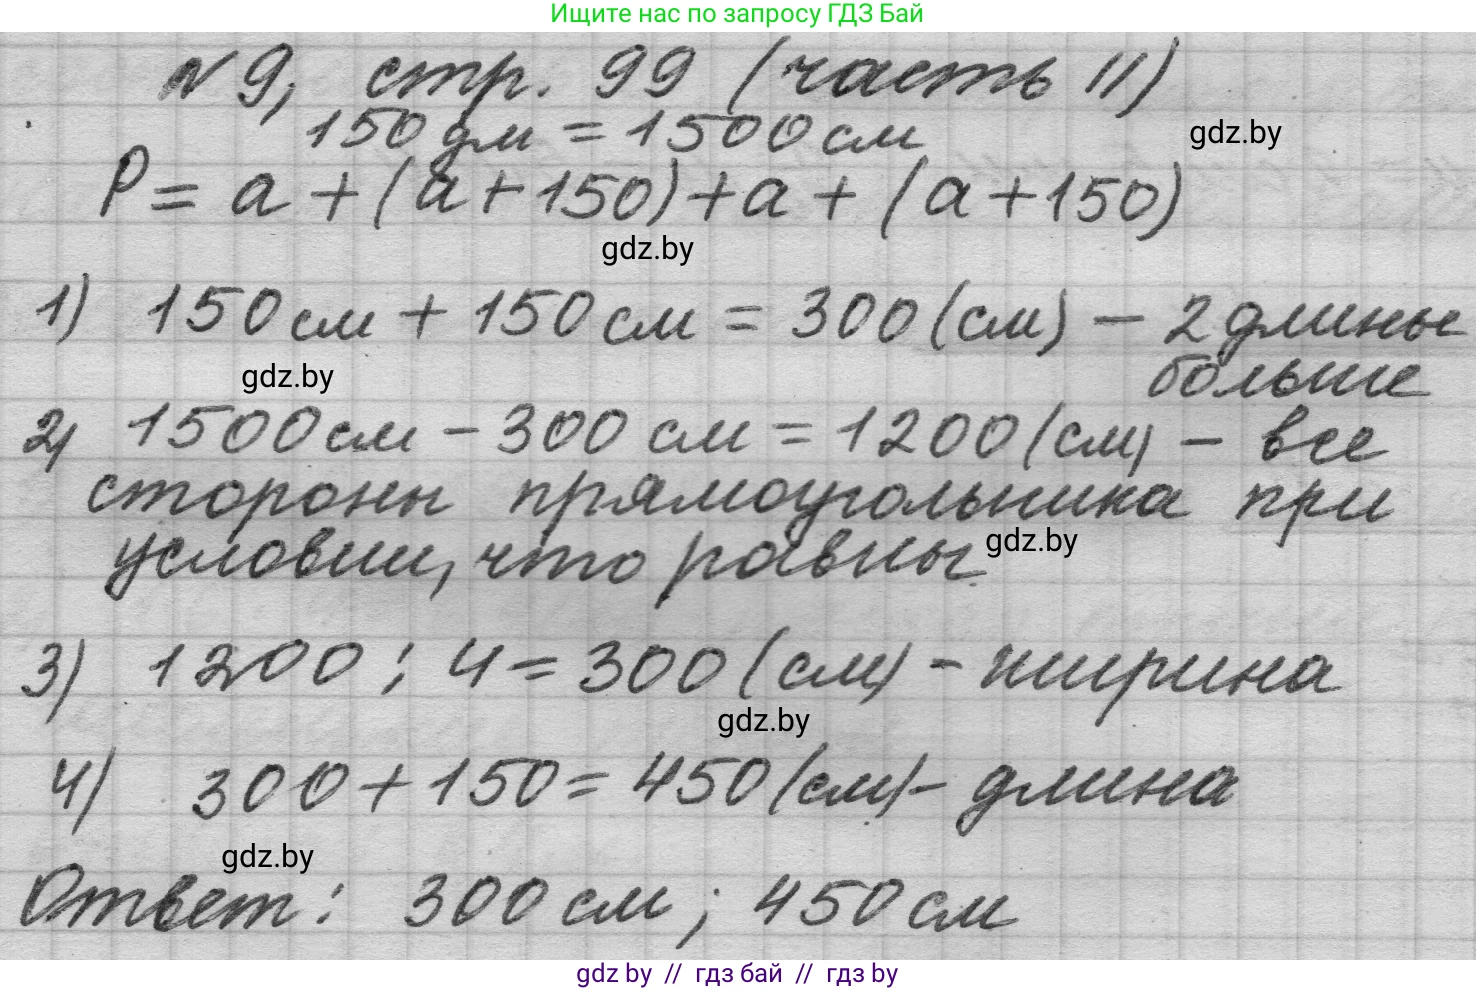 Ищите нас по запросу ГДЗ Бай
№9, стр. 99 (часть II)
150 дм = 1500 см
gdz.by
P = a + (a + 150) + a + (a + 150)
gdz.by
1) 150 см + 150 см = 300 (см) - 2 длины
больше
gdz.by
2) 1500 см - 300 см = 1200 (см) - все
стороны прямоугольника при
условии, что равны
gdz.by
3) 1200 : 4 = 300 (см) - ширина
gdz.by
4) 300 + 150 = 450 (см) - длина
gdz.by
Ответ: 300 см; 450 см
gdz by // гдз бай // гдз by